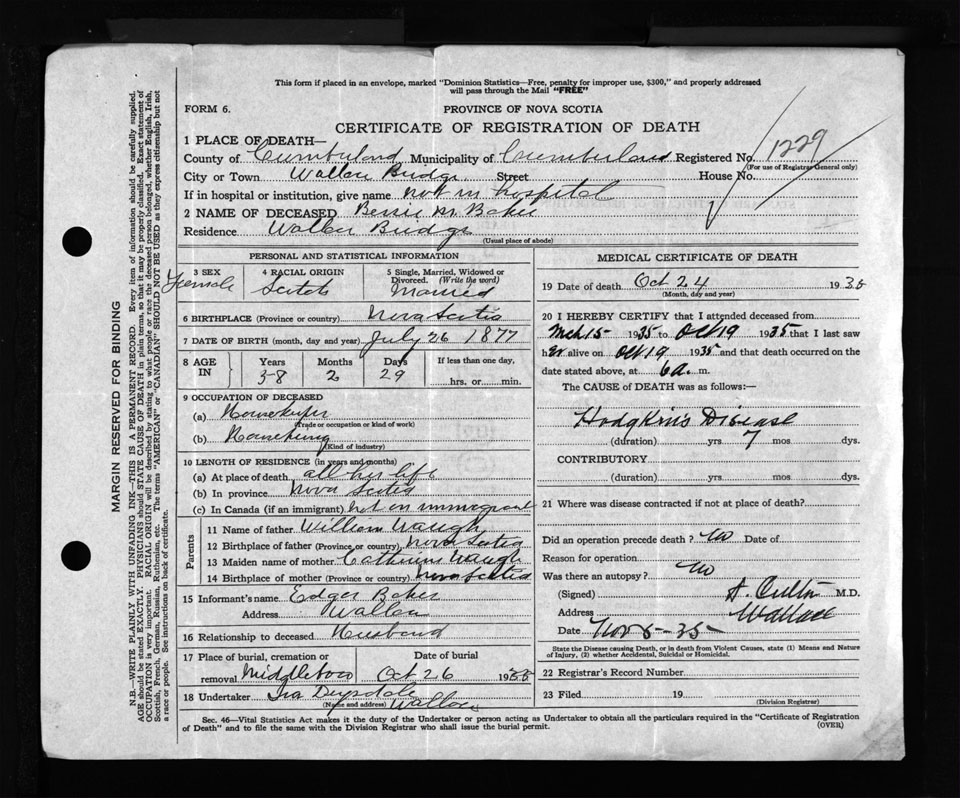 This form if placed in an envelope, marked "Dominion Statistics—Free, penalty for improper use, $300," and properly addressed
will pass through the Mail "FREE"
FORM 6.
PROVINCE OF NOVA SCOTIA
CERTIFICATE OF REGISTRATION OF DEATH
1 PLACE OF DEATH—
County of Cumberland Municipality of Cumberland Registered No. 1229
(For use of Registrar General only)
City or Town Wallace Bridge Street House No.
If in hospital or institution, give name not in hospital
2 NAME OF DECEASED M. Baker
Residence Wallace Bridge
(Usual place of abode)
PERSONAL AND STATISTICAL INFORMATION
3 SEX Female
4 RACIAL ORIGIN Scotch
5 Single, Married, Widowed or
Divorced. (Write the word)
Married
6 BIRTHPLACE (Province or country) Nova Scotia
7 DATE OF BIRTH (month, day and year) July 26 1877
8 AGE IN Years Months Days If less than one day,
58 2 29 hrs. or min.
9 OCCUPATION OF DECEASED
(a) Housekeeper
(Trade or occupation or kind of work)
(b) Housekeeping
(Kind of industry)
10 LENGTH OF RESIDENCE (in years and months)
(a) At place of death all her life
(b) In province Nova Scotia
(c) In Canada (if an immigrant) not an immigrant
Parents
11 Name of father William Waugh
12 Birthplace of father (Province or country) Nova Scotia
13 Maiden name of mother Catherine Waugh
14 Birthplace of mother (Province or country) Nova Scotia
15 Informant's name Edger Baker
Address Wallace
16 Relationship to deceased Husband
17 Place of burial, cremation or Date of burial
removal Middleboro Oct 26 1935
18 Undertaker Ira Drysdale
(Name and address) Wallace
MEDICAL CERTIFICATE OF DEATH
19 Date of death Oct 24 1935
(Month, day and year)
20 I HEREBY CERTIFY that I attended deceased from
Mch 15 1935 to Oct 19 1935 that I last saw
her alive on Oct 19 1935 and that death occurred on the
date stated above, at 6 a. m.
The CAUSE of DEATH was as follows:—
Hodgkin's Disease
(duration) yrs. 7 mos. dys.
CONTRIBUTORY
(duration) yrs. mos. dys.
21 Where was disease contracted if not at place of death?
Did an operation precede death? no Date of
Reason for operation
Was there an autopsy? no
(Signed) M.D.
Address Wallace
Date Nov 5-35-
State the Disease causing Death, or in death from Violent Causes, state (1) Means and Nature
of Injury, (2) whether Accidental, Suicidal or Homicidal.
22 Registrar's Record Number
23 Filed 19
(Division Registrar)
Sec. 46—Vital Statistics Act makes it the duty of the Undertaker or person acting as Undertaker to obtain all the particulars required in the "Certificate of Registration
of Death" and to file the same with the Division Registrar who shall issue the burial permit. (OVER)
MARGIN RESERVED FOR BINDING
N.B.—WRITE PLAINLY WITH UNFADING INK—THIS IS A PERMANENT RECORD. Every item of information should be carefully supplied.
AGE should be stated EXACTLY. PHYSICIANS should STATE CAUSE OF DEATH in plain terms, so that it may be properly classified. Exact statement of
OCCUPATION is very important. RACIAL ORIGIN will be described by stating to what people or race the deceased person belonged, whether English, Irish,
Scottish, French, German, Russian, Ruthenian, etc. The terms "AMERICAN" or "CANADIAN" SHOULD NOT BE USED as they express citizenship but not
a race or people. See instructions on back of certificate.